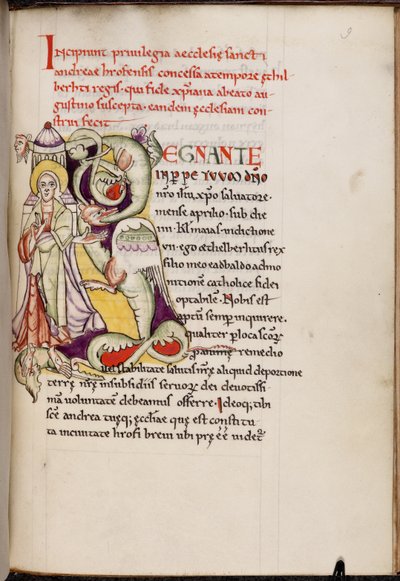 9
Incipiunt privilegia aecclesie sancti
andreae hrofensis concessa a tempore ethil
berhti regis. qui fide xpiana a beato au
gustino suscepta. eandem ecclesiam con
strui fecit
REGNANTE
IN PERPETUUM DNO
nro ihu xpo salvatore.
mense aprilio. sub die
iiii. kl maias. indictione
vii. ego æthelberhtus rex
filio meo eadbaldo admo
nitionem catholice fidei
optabilem. Nobis est
aptum semper inquirere.
qualiter per loca scorum
pro anime remedio
vel stabilitate salutis nre aliquid de portione
terre nre in subsidiis servorum dei devotissi
mam voluntatem debeamus offerre. Ideoque tibi
sce andrea tueque ecclesiae que est constituta
in civitate hrofi brevi ubi preesse videtur